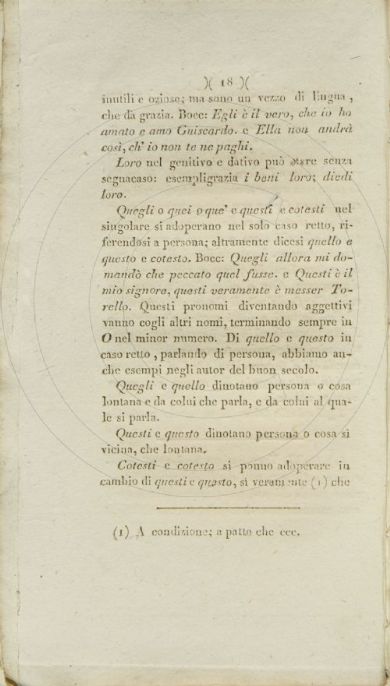 )( 18 )(
inutili e oziose; ma sono un vezzo di lingua,
che dà grazia. Bocc: Egli è il vero, che io ho
amato e amo Guiscardo. e Ella non andrà
così, ch' io non te ne paghi.
Loro nel genitivo e dativo può stare senza
segnacaso: esempligrazia i beni loro; diedi
loro.
Quegli o quei o que' e questi e cotesti nel
singolare si adoperano nel solo caso retto, ri-
ferendosi a persona; altramente dicesi quello e
questo e cotesto. Bocc: Quegli allora mi do-
mandò che peccato quel fusse. e Questi è il
mio signore, questi veramente è messer To-
rello. Questi pronomi diventando aggettivi
vanno cogli altri nomi, terminando sempre in
O nel minor numero. Di quello e questo in
caso retto, parlando di persona, abbiamo an-
che esempi negli autor del buon secolo.
Quegli e quello dinotano persona o cosa
lontana e da colui che parla, e da colui al qua-
le si parla.
Questi e questo dinotano persona o cosa sì
vicina, che lontana.
Cotesti e cotesto si ponno adoperare in
cambio di questi e questo, sì veramente (1) che
(1) A condizione; a patto che ecc.